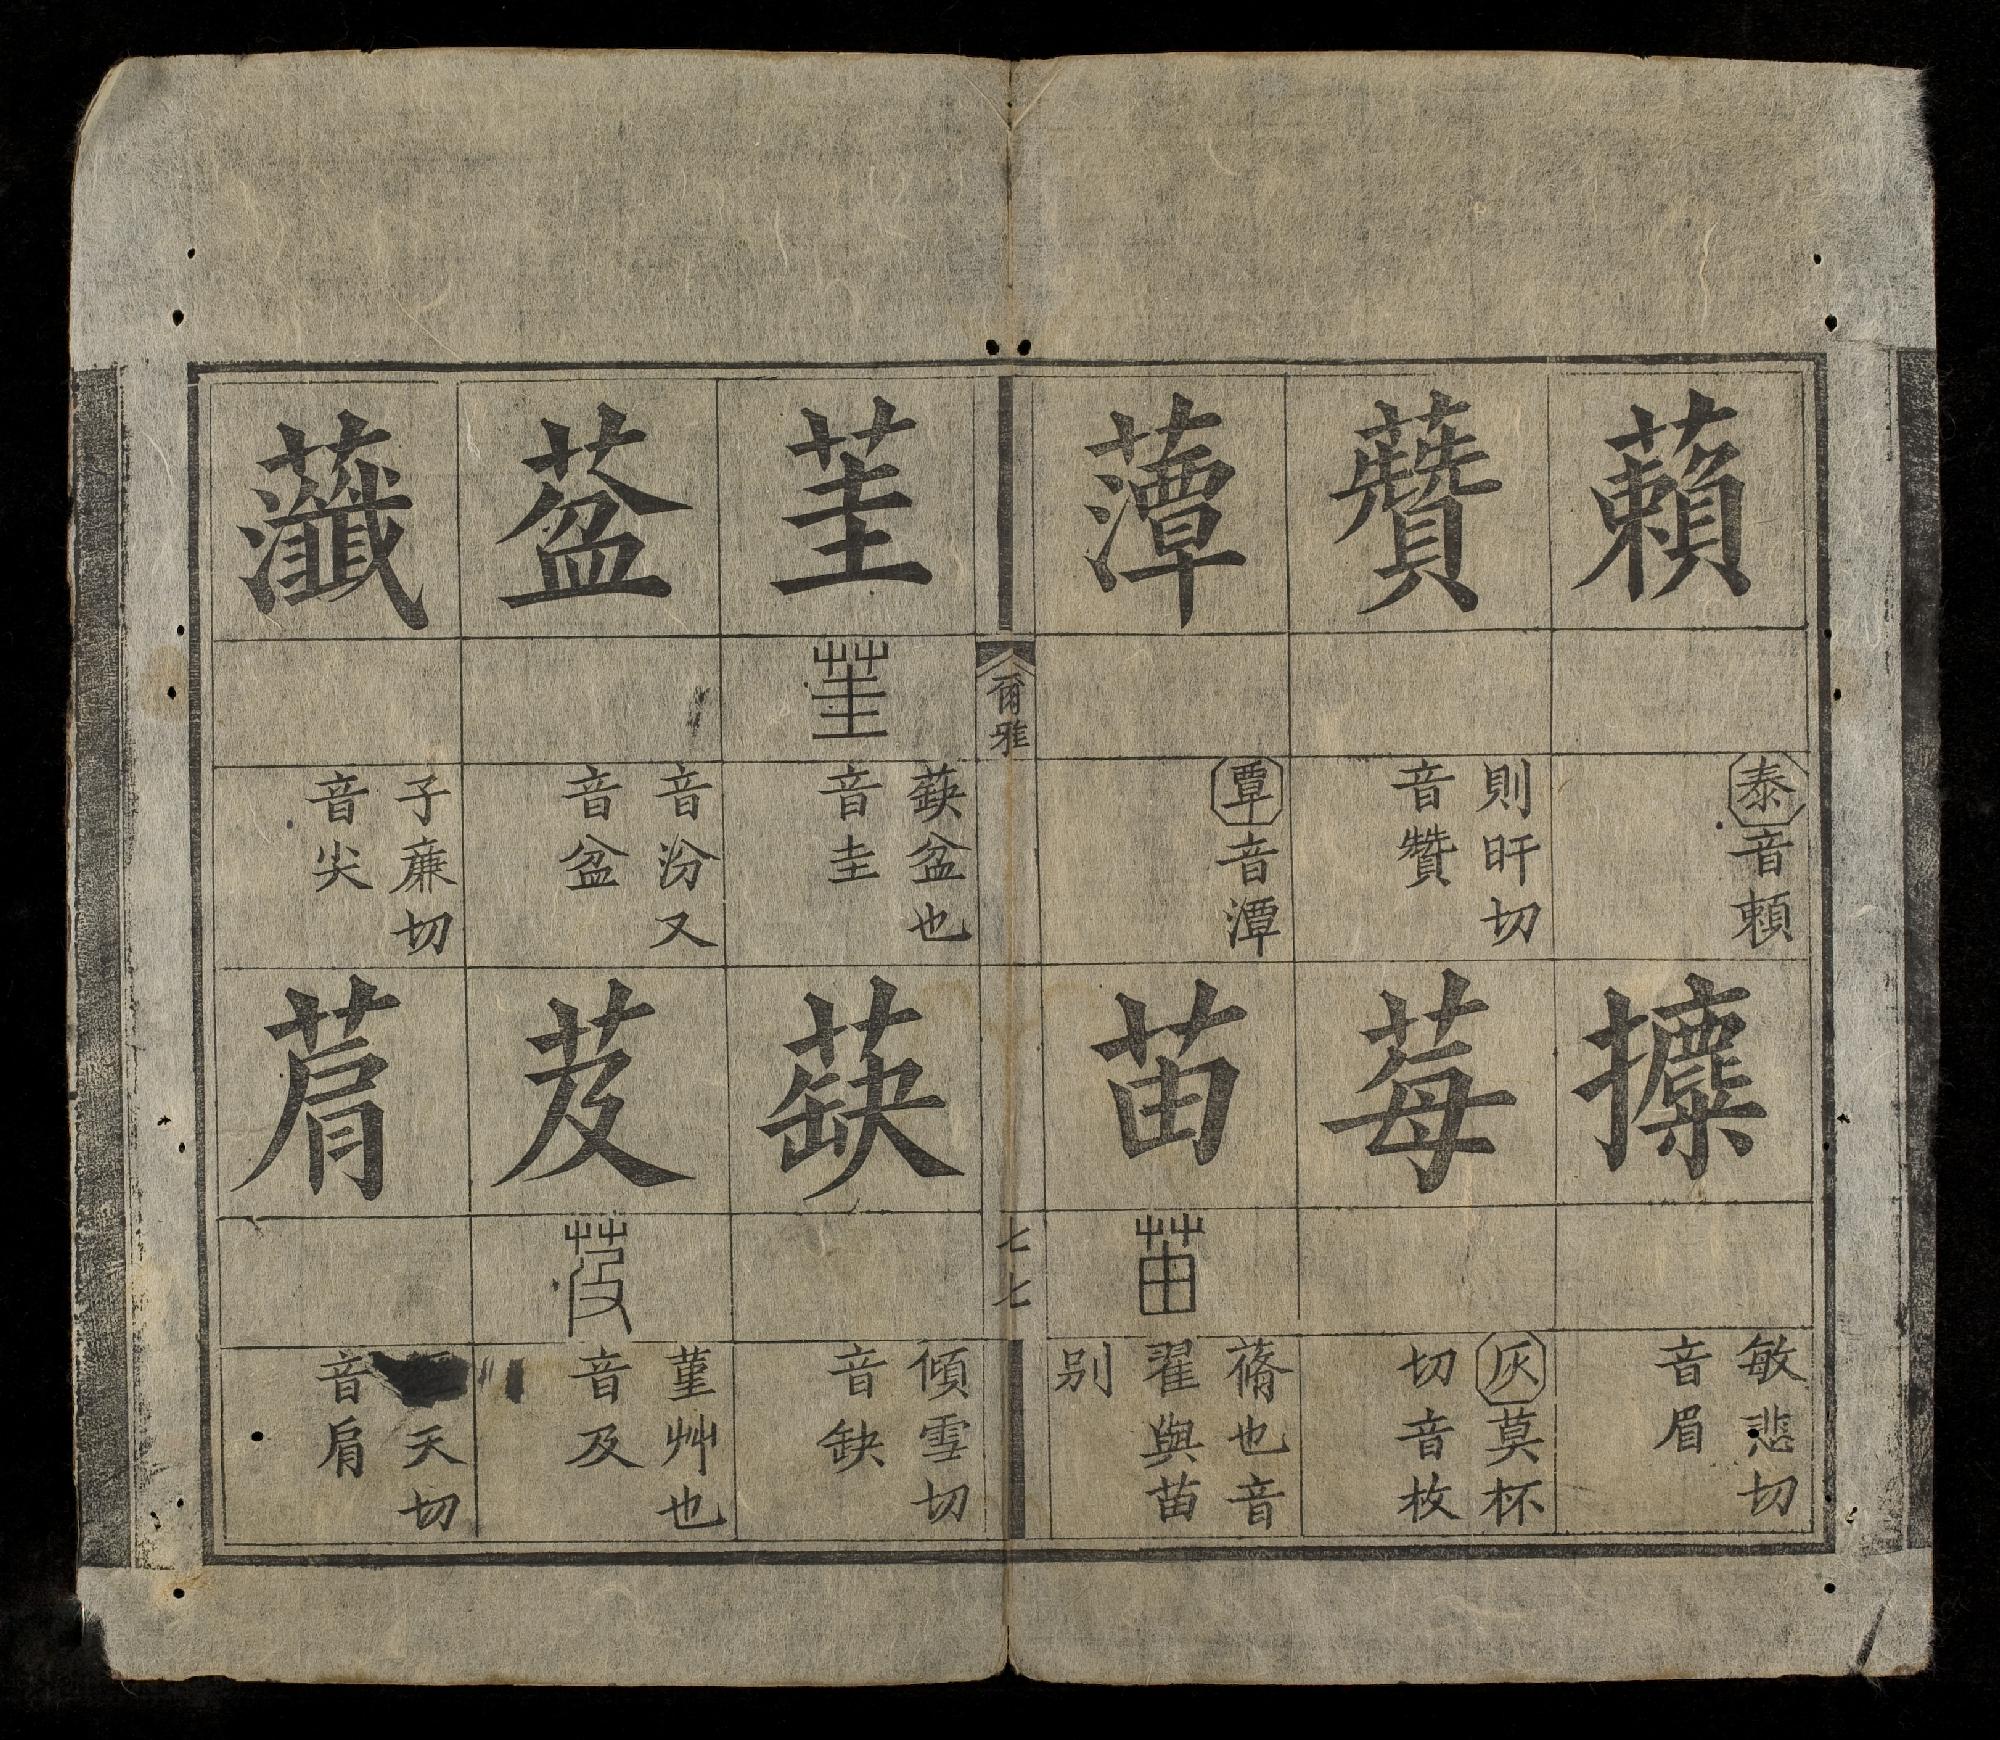 藾
泰音賴
攗
敏悲切
音眉
𧄽
則旰切
音贊
莓
灰莫杯
切音枚
藫
覃音潭
苖
苖
蓨也音
翟與苗
別
爾雅
七七
茥
茥
蒛葐也
音圭
蒛
傾雪切
音缺
葐
音汾又
音盆
芨
芨
菫艸也
音及
虃
子廉切
音尖
菺
天切
音肩